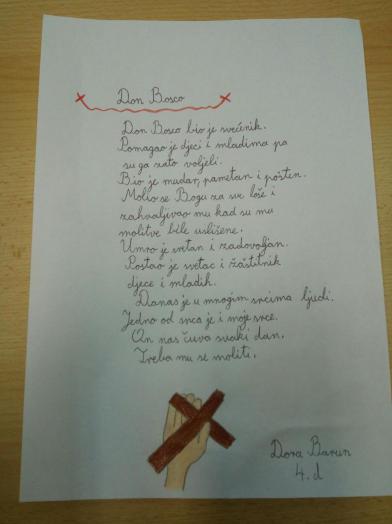 Don Bosco
Don Bosco bio je svećenik.
Pomagao je djeci i mladima pa
su ga zato voljeli.
Bio je mudar, pametan i pošten.
Molio se Bogu za sve loše i
zahvaljivao mu kad su mu
molitve bile uslišene.
Umro je sretan i zadovoljan.
Postao je svetac i žaštitnik
djece i mladih.
Danas je u mnogim srcima ljudi.
Jedno od srca je i moje srce.
On nas čuva svaki dan.
Treba mu se moliti.
Dora Barun
4. d